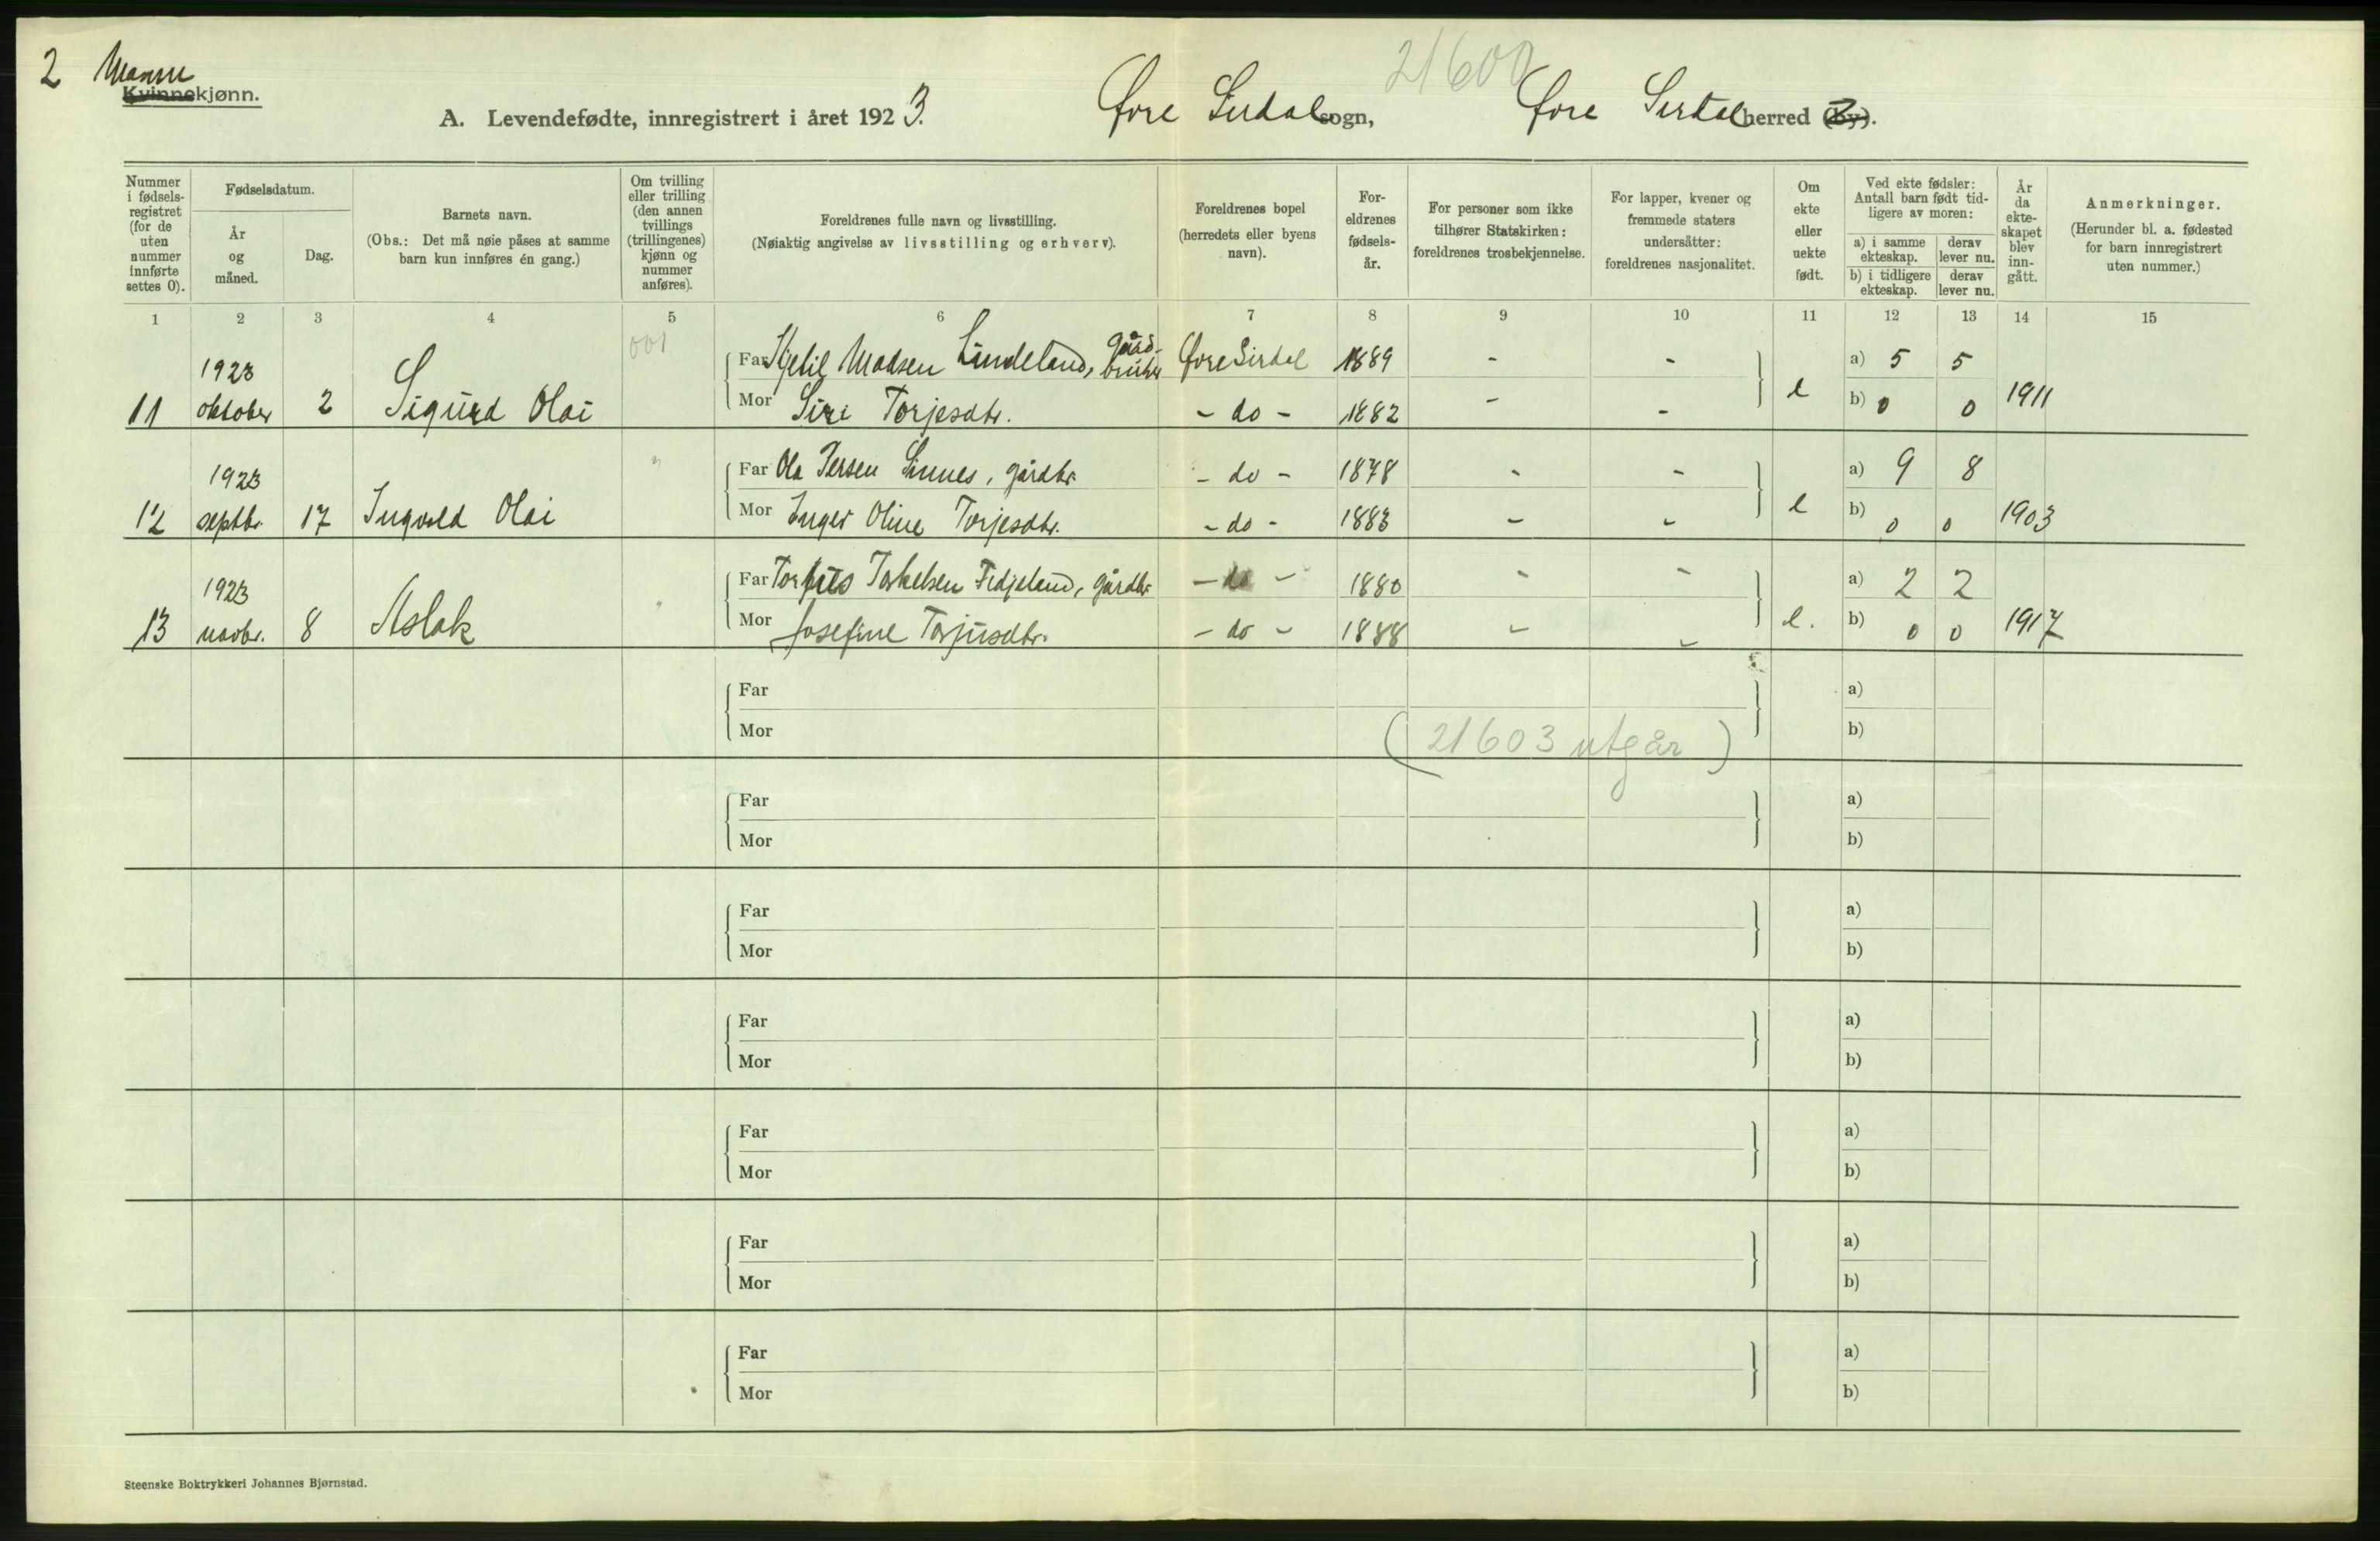 2 Manne
Kvinnekjønn.
21600
A. Levendefødte, innregistrert i året 1923. Øvre Sirdal sogn, Øvre Sirdal herred (by).
Nummer i fødsels- registret (for de uten nummer innførte settes 0).
Fødselsdatum.
År og måned.
Dag.
Barnets navn.
(Obs.: Det må nøie påses at samme barn kun innføres én gang.)
Om tvilling eller trilling (den annen tvillings (trillingenes) kjønn og nummer anføres).
Foreldrenes fulle navn og livsstilling.
(Nøiaktig angivelse av livsstilling og erhverv).
Foreldrenes bopel (herredets eller byens navn).
For- eldrenes fødsels- år.
For personer som ikke tilhører Statskirken: foreldrenes trosbekjennelse.
For lapper, kvener og fremmede staters undersåtter: foreldrenes nasjonalitet.
Om ekte eller uekte født.
Ved ekte fødsler: Antall barn født tid- ligere av moren:
a) i samme ekteskap.
derav lever nu.
b) i tidligere ekteskap.
derav lever nu.
År da ekte- skapet blev inn- gått.
Anmerkninger.
(Herunder bl. a. fødested for barn innregistrert uten nummer.)
1 2 3 4 5 6 7 8 9 10 11 12 13 14 15
001
1923 Far Kjetil Madsen Lindeland, gård- bruker Øvre Sirdal 1889 - - a) 5 5
11 oktober 2 Sigurd Olai Mor Siri Torjesdtr. - do - 1882 - - e b) 0 0 1911
1923 Far Ola Persen Sinnes, gårdbr. - do - 1878 - - a) 9 8
12 septbr. 17 Ingvald Olai Mor Inger Oline Torjesdtr. - do - 1883 - - e b) 0 0 1903
1923 Far Torkelsen Fidjeland, gårdbr. - do - 1880 - - a) 2 2
13 novbr. 8 Aslak Mor Josefine Torjusdtr. - do - 1888 - - e. b) 0 0 1917
Far a)
Mor b)
(21603 utgår)
Far a)
Mor b)
Far a)
Mor b)
Far a)
Mor b)
Far a)
Mor b)
Far a)
Mor b)
Far a)
Mor b)
Steenske Boktrykkeri Johannes Bjørnstad.